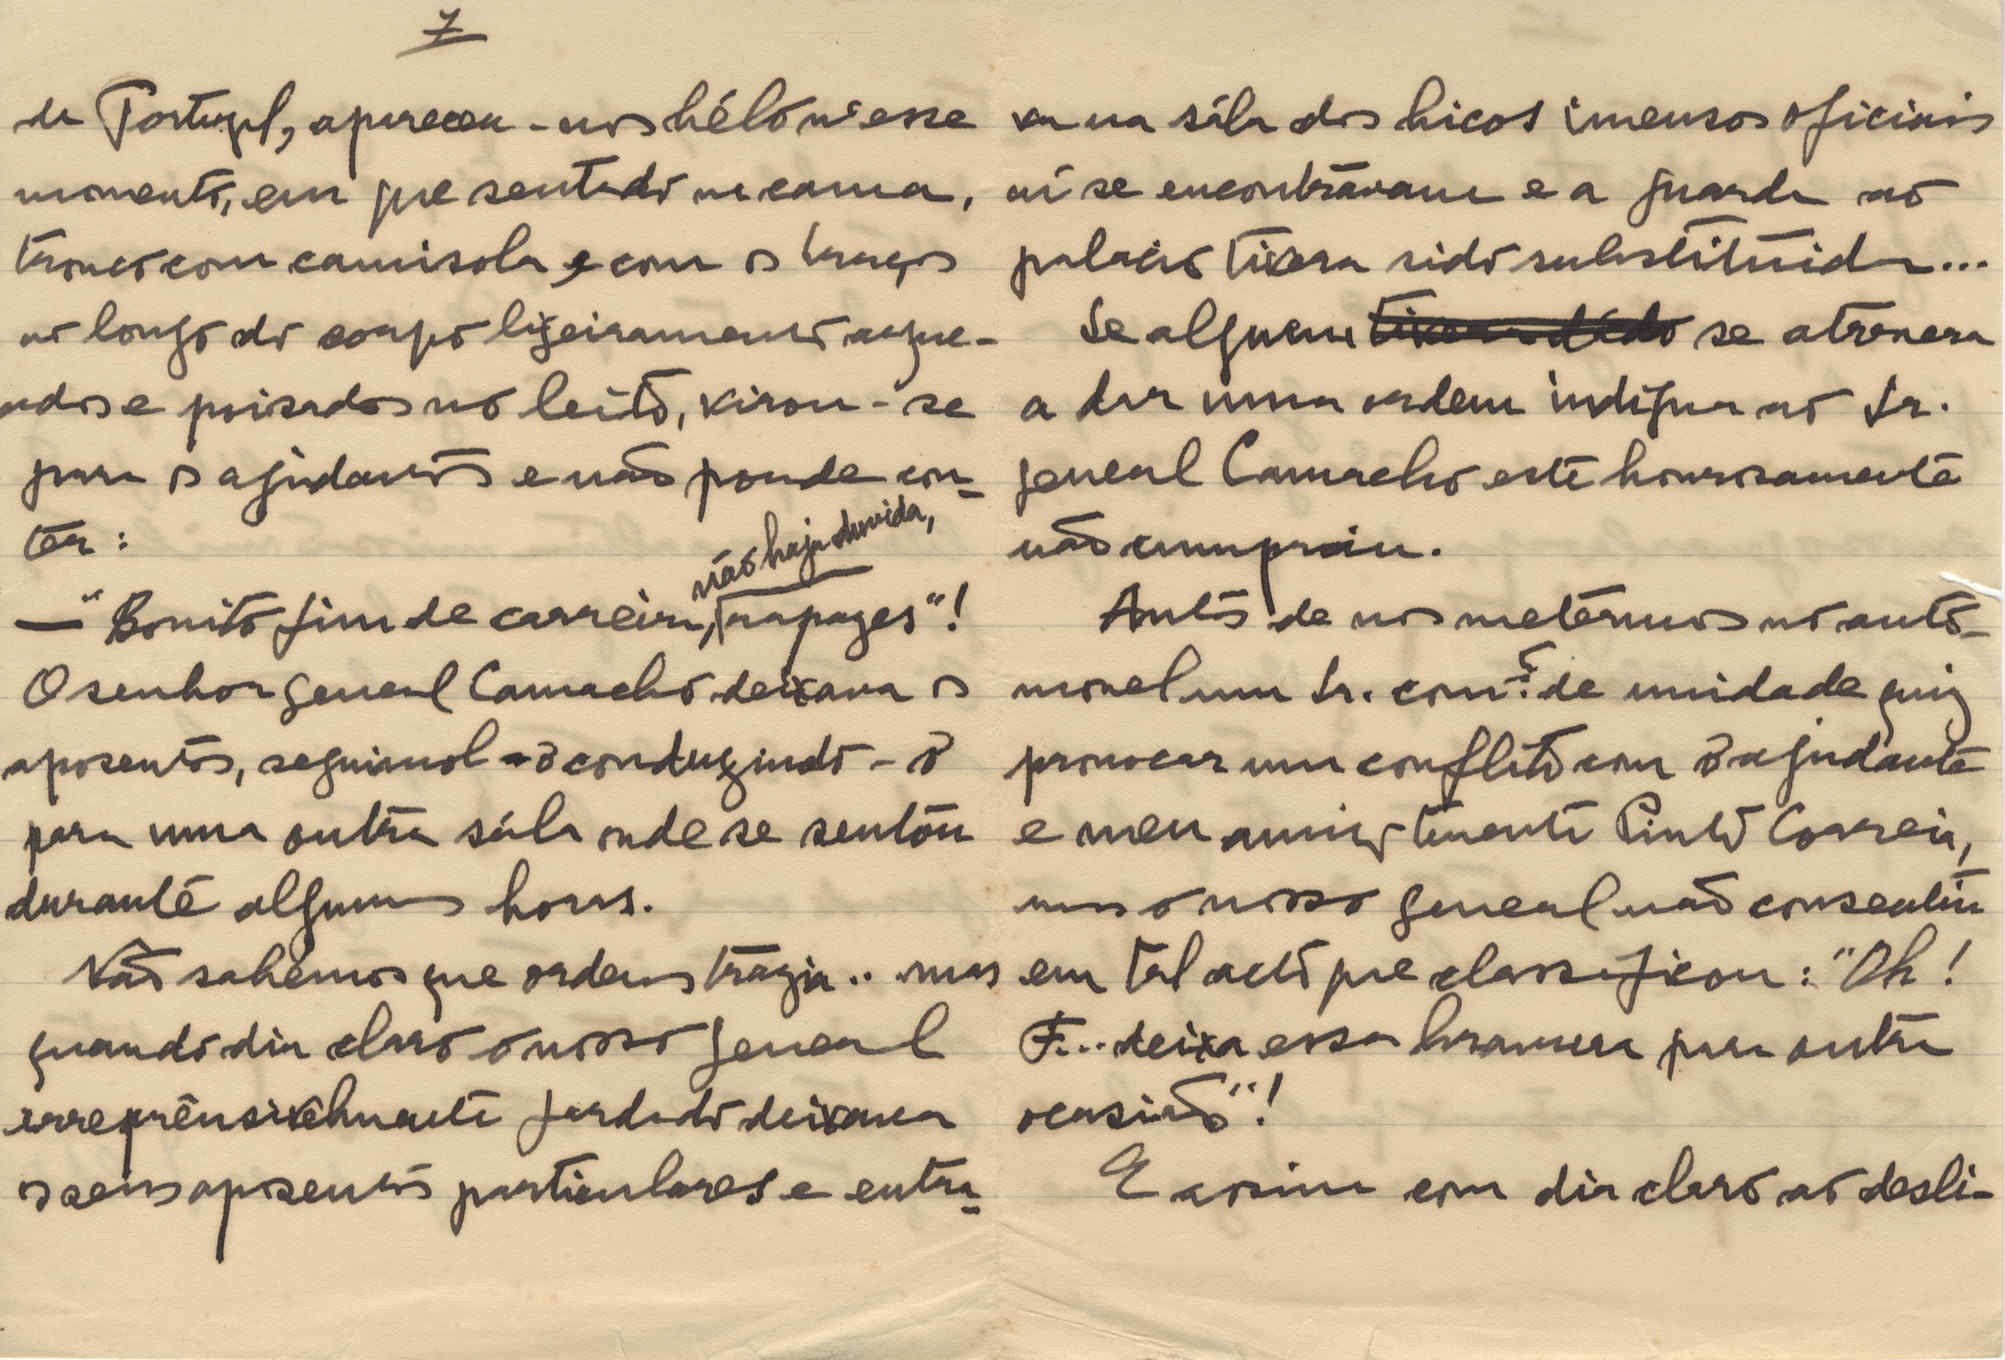 7
de Portugal, apareceu-nos béló n'esse
momento, em que sentado na cama,
tronco com camisola e com os braços
ao longo do corpo ligeiramente arque-
ados e poisados no leito, virou-se
para os ajudantes e não poude con-
ter:
não haja duvida,
— "Bonito fim de carreira, rapazes"!
O senhor general Camacho deixava os
aposentos, seguimol-o conduzindo-o
para uma outra sála onde se sentou
durante algumas horas.
Não sabemos que ordens trazia.. mas
quando dia claro o nosso general
irreprênsivelmente fardado deixava
os seus aposentos particulares e entra-
va na sála dos bicos imensos oficiais
aí se encontrávam e a guarda ao
palacio tivera sido substituida...
Se alguem se atrevera
a dar uma ordem indigna ao Sr.
general Camacho este honrosamente
não cumpriu.
Antes de nos metermos no auto-
movel um Sr. com.te de unidade quiz
provocar um conflito com o ajudante
e meu amigo tenente Pinto Correia,
mas o nosso general não consentiu
em tal acto que classificou: "Oh!
F... deixa essa bravura para outra
ocasião"!
E assim com dia claro ao desli-